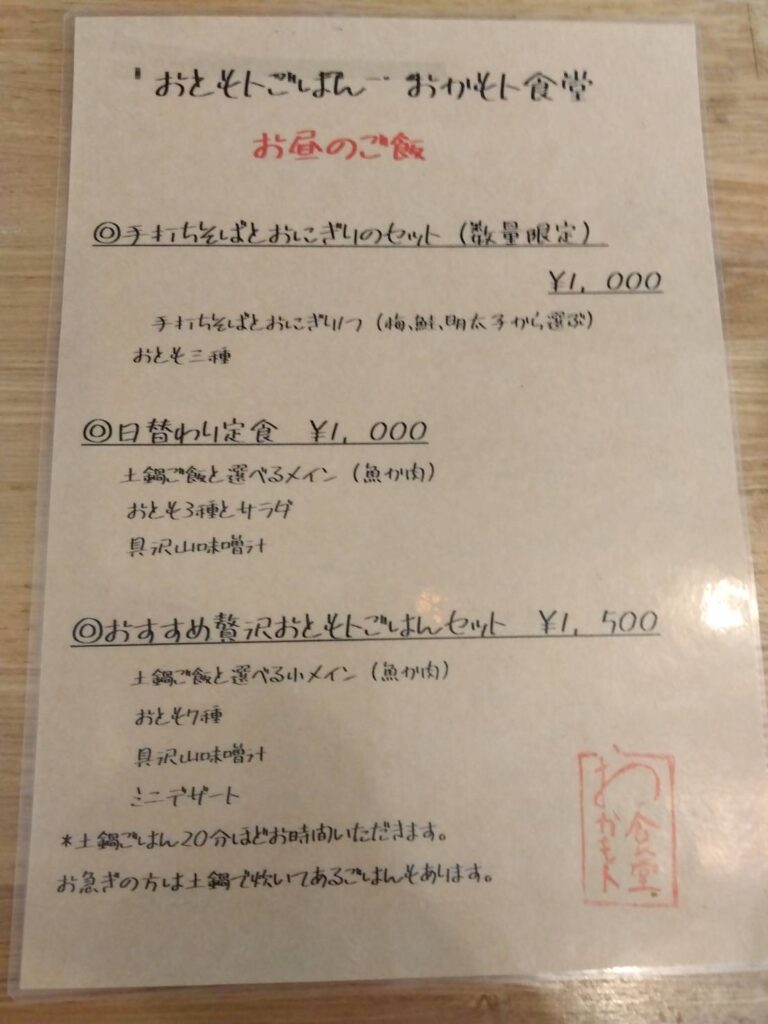 "おともトごはん" おかモト食堂
お昼のご飯
◎手打ちそばとおにぎりのセット(数量限定)
¥1,000
手打ちそばとおにぎり1つ(梅、鮭、明太子から選ぶ)
おとも三種
◎日替わり定食 ¥1,000
土鍋ご飯と選べるメイン(魚か肉)
おとも3種とサラダ
具沢山味噌汁
◎おすすめ贅沢おともトごはんセット ¥1,500
土鍋ご飯と選べる小メイン(魚か肉)
おとも7種
具沢山味噌汁
ミニデザート
*土鍋ごはん20分ほどお時間いただきます。
お急ぎの方は土鍋で炊いてあるごはんもあります。
おかモト
食堂